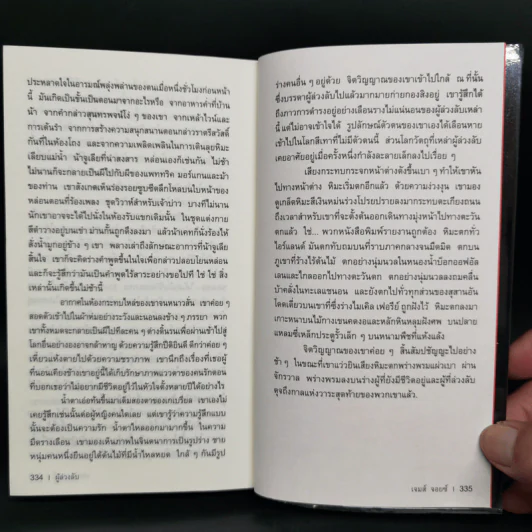 ประหลาดใจในอารมณ์พลุ่งพล่านของตนเมื่อหนึ่งชั่วโมงก่อนหน้า
นี้ มันเกิดเป็นขั้นเป็นตอนมาจากอะไรหรือ จากอาหารค่ำที่บ้าน
น้า จากคำกล่าวสุนทรพจน์โง่ ๆ ของเขา จากเหล้าไวน์และ
การเต้นรำ จากการสร้างความสนุกสนานตอนกล่าวราตรีสวัสดิ์
กันที่ในห้องโถง และจากความเพลิดเพลินในการเดินลุยหิมะ
เลียบแม่น้ำ น้าจูเลียที่น่าสงสาร หล่อนเองก็เช่นกัน ไม่ช้า
ไม่นานก็จะกลายเป็นผีไปกับผีของแพททริค มอร์แกนและม้า
ของท่าน เขาสังเกตเห็นร่องรอยซูบซีดลึกโหลบนใบหน้าของ
หล่อนตอนที่ร้องเพลง ชุดวิวาห์สำหรับเจ้าบ่าว บางทีไม่นาน
นักเขาอาจจะได้ไปนั่งในห้องรับแขกเดิมนั้น ในชุดแต่งกาย
สีดำวางอยู่บนเข่า ม่านก็ถูกดึงลงมา แล้วน้าเคทก็นั่งร้องไห้
สั่งน้ำมูกอยู่ข้าง ๆ เขา พลางเล่าถึงลักษณะอาการที่น้าจูเลีย
สิ้นใจ เขาก็จะคิดหาคำพูดขึ้นในใจเพื่อกล่าวปลอบโยนหล่อน
และก็จะรู้สึกว่ามันเป็นคำพูดไร้สาระอย่างขอไปที ใช่ ใช่ สิ่ง
เหล่านั้นเกิดขึ้นไม่ช้านี้
อากาศในห้องกระทบไหล่ของเขาจนหนาวสั่น เขาค่อย ๆ
สอดตัวเข้าไปในผ้าห่มอย่างระวังและนอนลงข้าง ๆ ภรรยา พวก
เขาทั้งหมดจะกลายเป็นผีไปทีละคน ๆ ต่างดิ้นรนเพื่อผ่านเข้าไปสู่
โลกอื่นอย่างองอาจกล้าหาญ ด้วยความรู้สึกปีติยินดี ดีกว่าค่อย ๆ
เหี่ยวแห้งตายไปด้วยความชราภาพ เขานึกถึงเรื่องที่เธอผู้
ที่นอนเคียงข้างเขาอยู่นี้ได้เก็บรักษาภาพแววตาของคนรักตอน
ที่บอกเธอว่าไม่อยากมีชีวิตอยู่ไว้ในหัวใจตั้งหลายปีได้อย่างไร
น้ำตาเอ่อท้นขึ้นมาเต็มสองตาของเกเบรียล เขาเองไม่
เคยรู้สึกเช่นนั้นต่อผู้หญิงคนใดเลย แต่เขารู้ว่าความรู้สึกแบบ
นั้นจะต้องเป็นความรัก น้ำตาไหลออกมามากขึ้น ในความ
มืดรางเลือน เขามองเห็นภาพในจินตนาการเป็นรูปร่าง ชาย
หนุ่มคนหนึ่งยืนอยู่ใต้ต้นไม้ที่มีน้ำไหลหยด ใกล้ ๆ กันมีรูป
334 | ผู้ล่วงลับ
ร่างคนอื่น ๆ อยู่ด้วย จิตวิญญาณของเขาเข้าไปใกล้ ณ ที่นั้น
ซึ่งบรรดาผู้ล่วงลับไปแล้วมากมายก่ายกองสิงอยู่ เขารู้สึกได้
ถึงภาวการดำรงอยู่อย่างเลือนรางไม่แน่นอนของผู้ล่วงลับเหล่า
นี้ แต่ไม่อาจเข้าใจได้ รูปลักษณ์ตัวตนของเขาเองได้เลือนหาย
เข้าไปในโลกสีเทาที่ไม่มีตัวตนนี้ ส่วนโลกวัตถุที่เหล่าผู้ล่วงลับ
เคยอาศัยอยู่เมื่อครั้งหนึ่งกำลังละลายเล็กลงไปเรื่อย ๆ
เสียงกระทบกระจกหน้าต่างดังขึ้นเบา ๆ ทำให้เขาหัน
ไปทางหน้าต่าง หิมะเริ่มตกอีกแล้ว ด้วยความง่วงงุน เขามอง
ดูเกล็ดหิมะสีเงินหม่นร่วงโปรยปรายลงมากระทบตะเกียงถนน
ถึงเวลาสำหรับเขาที่จะตั้งต้นออกเดินทางมุ่งหน้าไปทางตะวัน
ตกแล้ว ใช่... พวกหนังสือพิมพ์รายงานถูกต้อง หิมะตกทั่ว
ไอร์แลนด์ มันตกทับถมบนที่ราบภาคกลางจนมืดมิด ตกบน
ภูเขาที่ร้างไร้ต้นไม้ ตกอย่างนุ่มนวลในหนองน้ำบ๊อกออฟอัล
เลนและไกลออกไปทางตะวันตก ตกอย่างนุ่มนวลลงถมคลื่น
บ้าคลั่งในทะเลแชนอน และยังตกไปทั่วทุกส่วนของสุสานอัน
โดดเดี่ยวบนเขาที่ซึ่งร่างไมเคิล เฟอรีย์ ถูกฝังไว้ หิมะตกลงมา
เกาะหนาบนไม้กางเขนคดงอและหลักหินหลุมฝังศพ บนปลาย
แหลมซี่เหล็กประตูรั้วเล็ก ๆ บนหนามพืชที่แห้งแล้ง
จิตวิญญาณของเขาค่อย ๆ สิ้นสัมปชัญญะไปอย่าง
ช้า ๆ ในขณะที่เขาแว่วยินเสียงหิมะตกพร่างพรมแผ่วเบา ผ่าน
จักรวาล พร่างพรมลงบนร่างผู้ที่ยังมีชีวิตอยู่และผู้ที่ล่วงลับ
ดุจถึงกาลแห่งวาระสุดท้ายของพวกเขาแล้ว.
เจมส์ จอยซ์ | 335